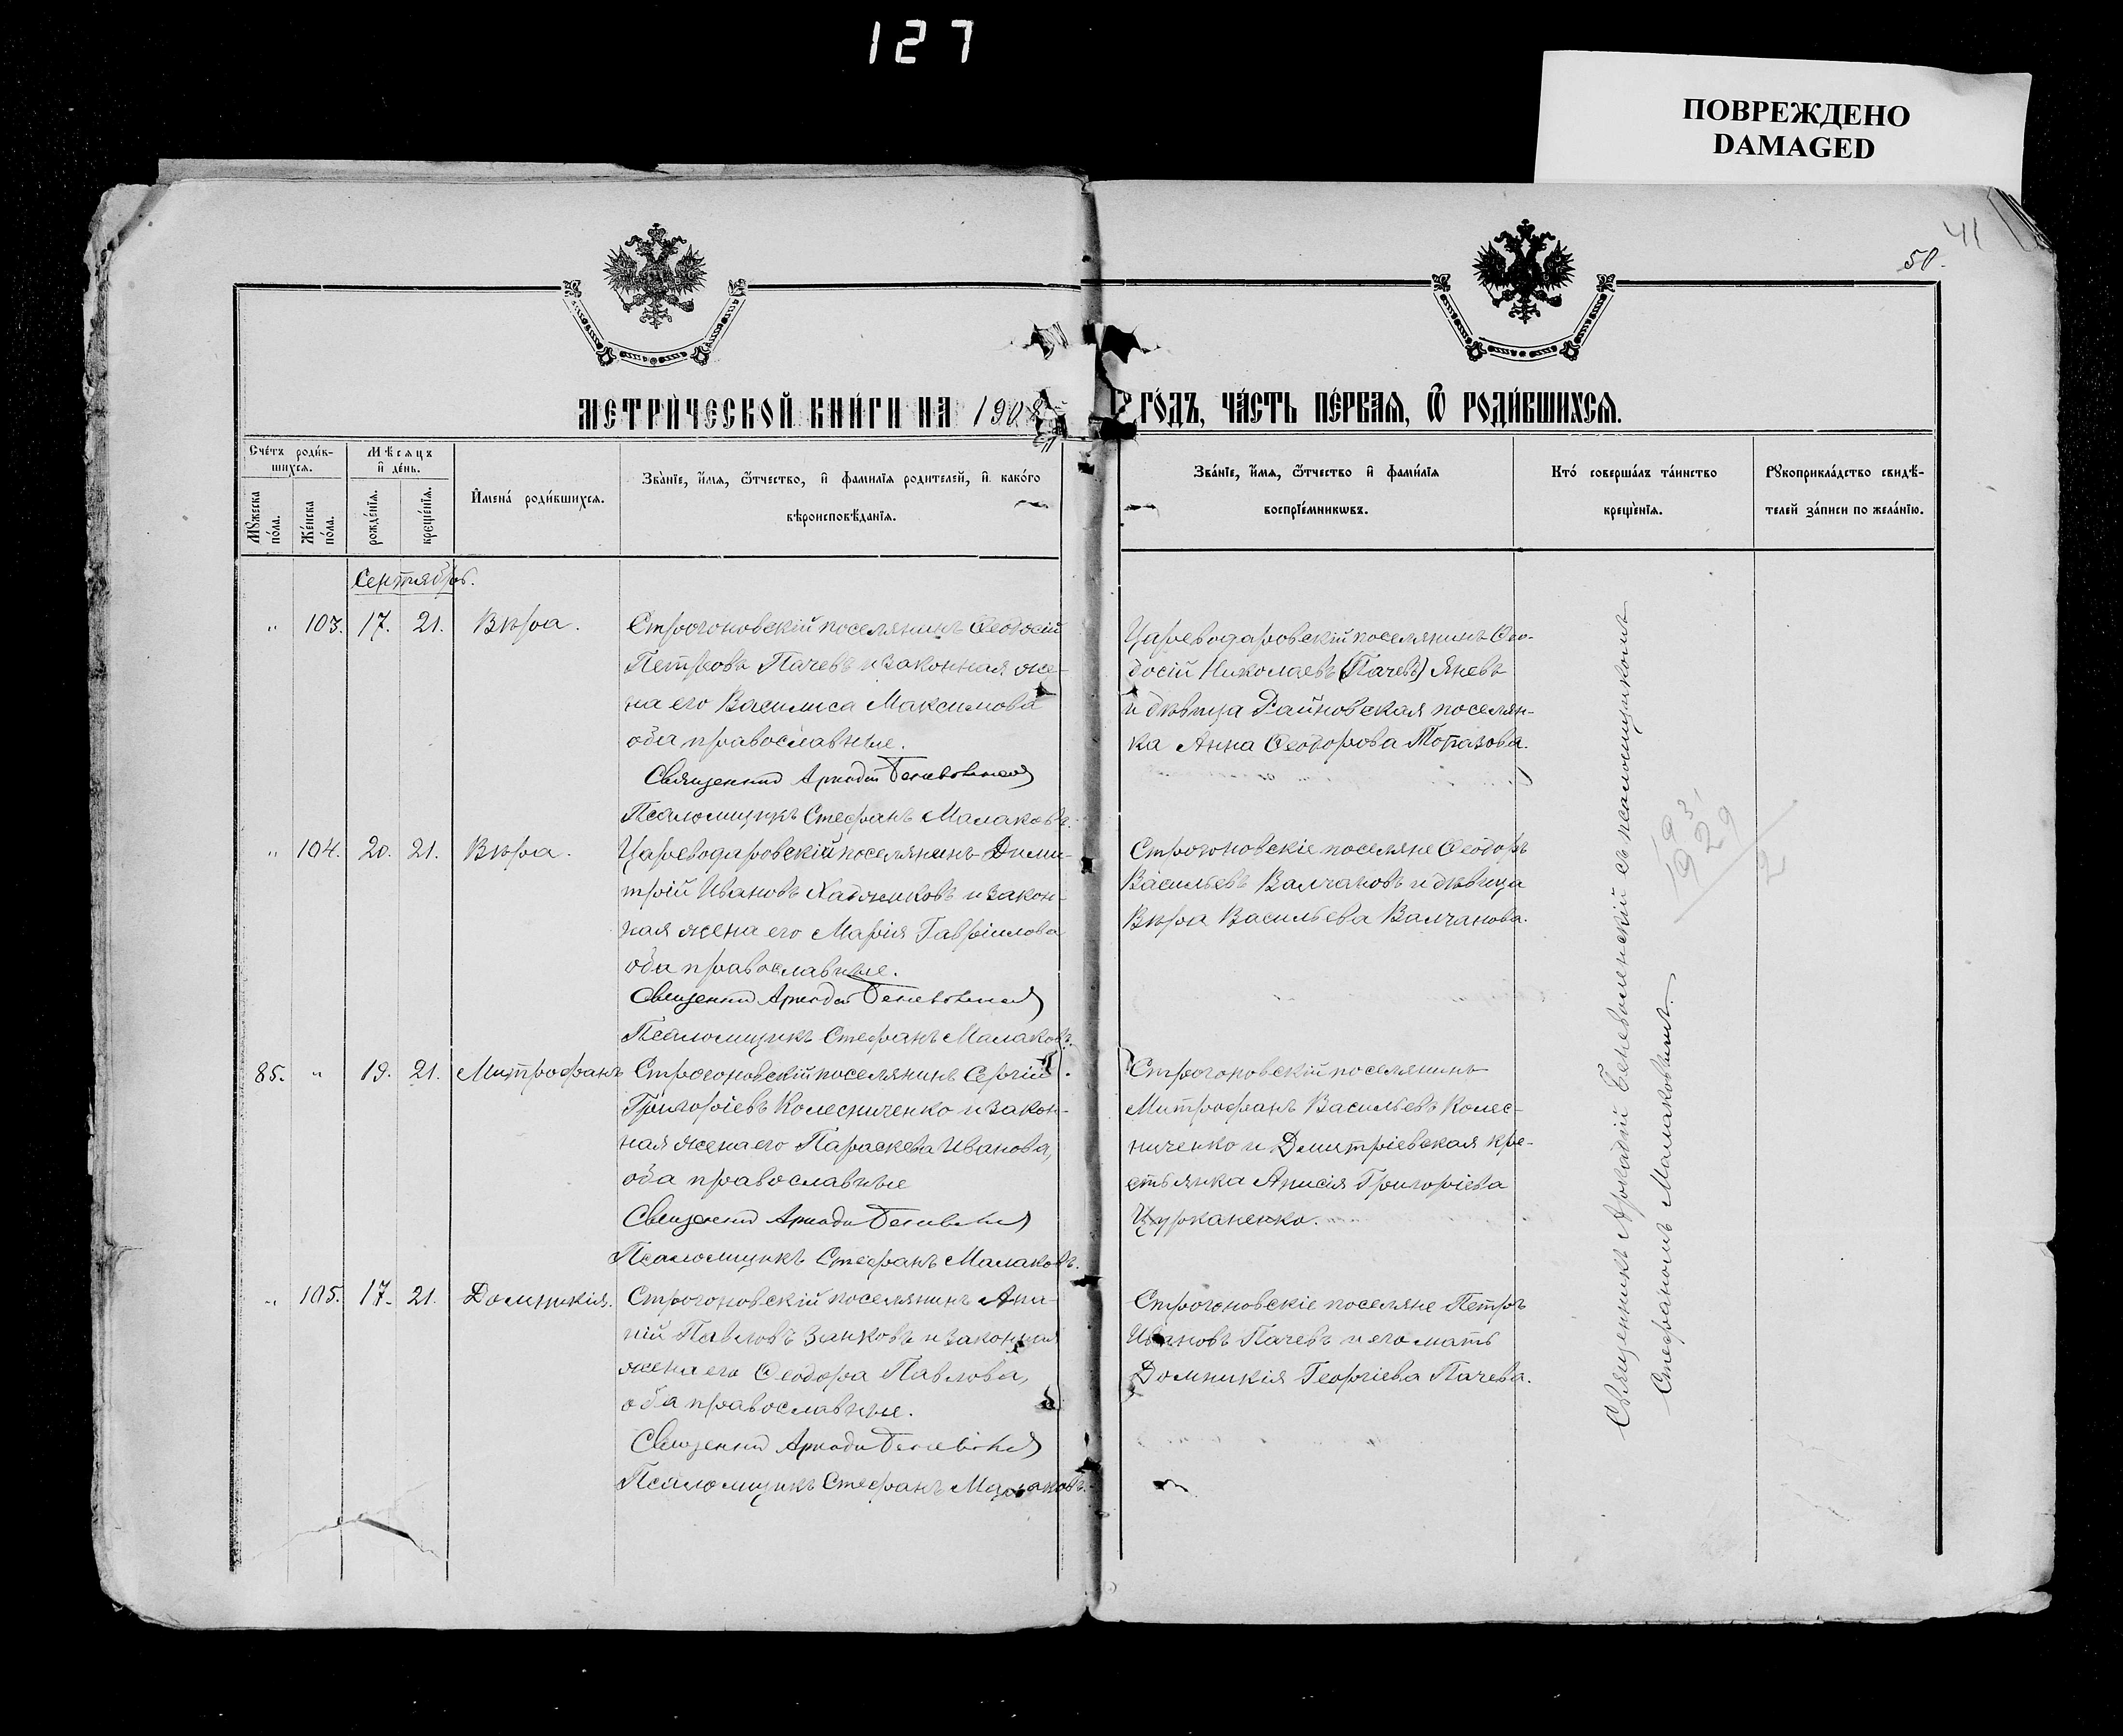 127
ПОВРЕЖДЕНО
DAMAGED
41
50.
МЕТРИ́ЧЕСКОЙ КНИ́ГИ НА 1908
ГО́ДЪ, ЧА́СТЬ ПЕ́РВАЯ, Ѿ РОДИ́ВШИХСЯ.
Сче́тъ роди́в-
шихся.
Мѣсяцъ
и҆ де́нь.
Мꙋ́жеска по́ла.
Же́нска по́ла.
рожде́нїя.
креще́нїя.
И҆мена̀ роди́вшихся.
Зва́нїе, и҆́мя, ѻ҆́тчество, и҆ фами́лїя роди́телей, и҆ како́го
вѣроисповѣ́данїя.
Зва́нїе, и҆́мя, ѻ҆́тчество и҆ фами́лїя
воспрїе́мникѡвъ.
Кто̀ соверша́лъ та́инство
креще́нїя.
Рꙋкоприкла́дство свидѣ́-
телей за́писи по жела́нїю.
Сентябрь.
" 103. 17. 21. Вѣра.
Строгоновскій поселянинъ Ѳеодосій
Петровъ Пачевъ и законная же-
на его Василиса Максимова
оба православные.
Священник Аркадій Беневоленскій
Псаломщикъ Стефанъ Малаковъ.
Цареводаровскій поселянинъ Ѳео-
досій Николаевъ (Пачевъ) Яневъ
и дѣвица Райновская поселян-
ка Анна Ѳеодорова Топазова.
" 104. 20. 21. Вѣра.
Цареводаровскій поселянинъ Дими-
трій Ивановъ Хаджиковъ и закон-
ная жена его Марія Гавріилова
оба православные.
Священник Аркадій Беневоленскій
Псаломщикъ Стефанъ Малаковъ.
Строгоновскіе поселяне Ѳеодоръ
Васильевъ Валчановъ и дѣвица
Вѣра Васильева Валчанова.
85. " 19. 21. Митрофанъ
Строгоновскій поселянинъ Сергій
Григоріевъ Колесниченко и закон-
ная жена его Параскева Иванова,
оба православные
Священник Аркадій Беневоленскій
Псаломщикъ Стефанъ Малаковъ.
Строгоновскій поселянинъ
Митрофанъ Васильевъ Колес-
ниченко и Димитріевская кре-
стьянка Анисія Григоріева
Цурканенко.
" 105. 17. 21. Домникія.
Строгоновскій поселянинъ Ана-
ній Павловъ Занковъ и законная
жена его Ѳеодора Павлова,
оба православные.
Священник Аркадій Беневоленскій
Псаломщикъ Стефанъ Малаковъ.
Строгоновскіе поселяне Петръ
Ивановъ Пачевъ и его мать
Домникія Георгіева Пачева.
Священникъ Аркадій Беневоленскій съ псаломщикомъ
Стефаномъ Малаковымъ.